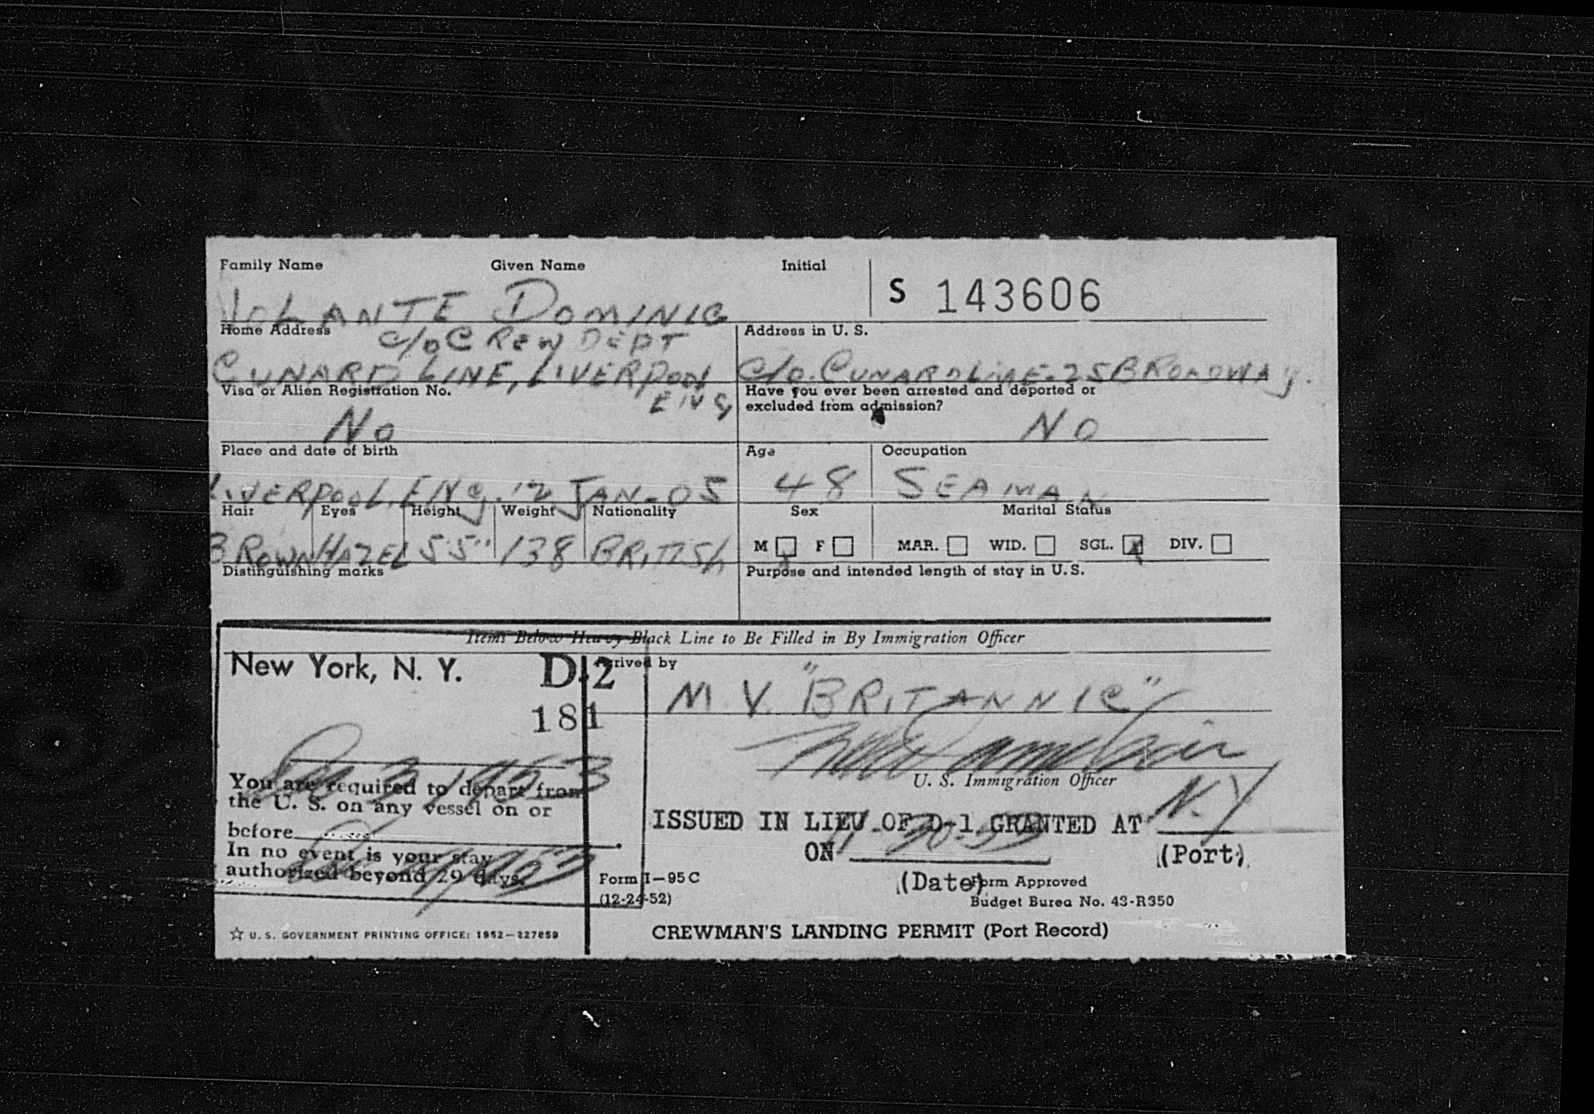 Family Name Given Name Initial
S 143606
VOLANTE DOMINIC
Home Address
Address in U. S.
C/O CREW DEPT
CUNARD LINE, LIVERPOOL
ENG
C/O. CUNARD LINE. 25 BROADWAY.
Visa or Alien Registration No.
Have you ever been arrested and deported or
excluded from admission?
No
NO
Place and date of birth
Age
Occupation
LIVERPOOL, ENG. 12 JAN-05
48
SEAMAN
Hair Eyes Height Weight Nationality
Sex
Marital Status
BROWN HAZEL 5'5" 138 BRITISH
M F MAR. WID. SGL. DIV.
Distinguishing marks
Purpose and intended length of stay in U. S.
Items Below Heavy Black Line to Be Filled in By Immigration Officer
New York, N. Y. D-2
181
Arrived by
M V. "BRITANNIC"
U. S. Immigration Officer
3 1953
You are required to depart from
the U. S. on any vessel on or
before
In no event is your stay
authorized beyond 29 days.
1953
ISSUED IN LIEU OF D-1 GRANTED AT N.Y
ON 11-30-53 (Port)
(Date)
Form I-95 C
(12-24-52)
Form Approved
Budget Burea No. 43-R350
☆ U. S. GOVERNMENT PRINTING OFFICE: 1952—227859
CREWMAN'S LANDING PERMIT (Port Record)